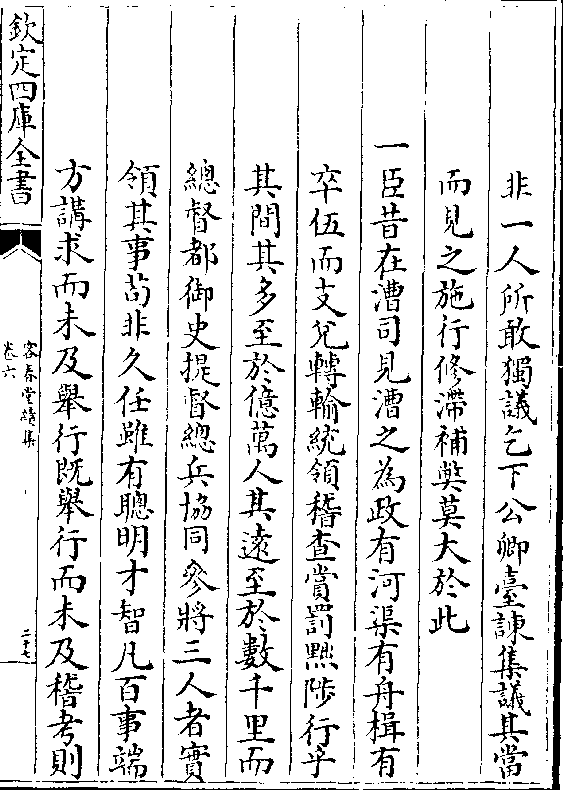 非一人所敢獨議乞下公卿臺諫集議其當
而見之施行修滯補獘莫大於此
一臣昔在漕司見漕之為政有河渠有舟楫有
卒伍而支兌轉輸統領稽查賞罰黜陟行乎
其間其多至於億萬人其遠至於數千里而
總督都御史提督總兵協同參將三人者實
領其事茍非久任雖有聰明才智凡百事端
方講求而未及舉行既舉行而未及稽考則
欽定四庫全書
容春堂續集
卷六
二十七